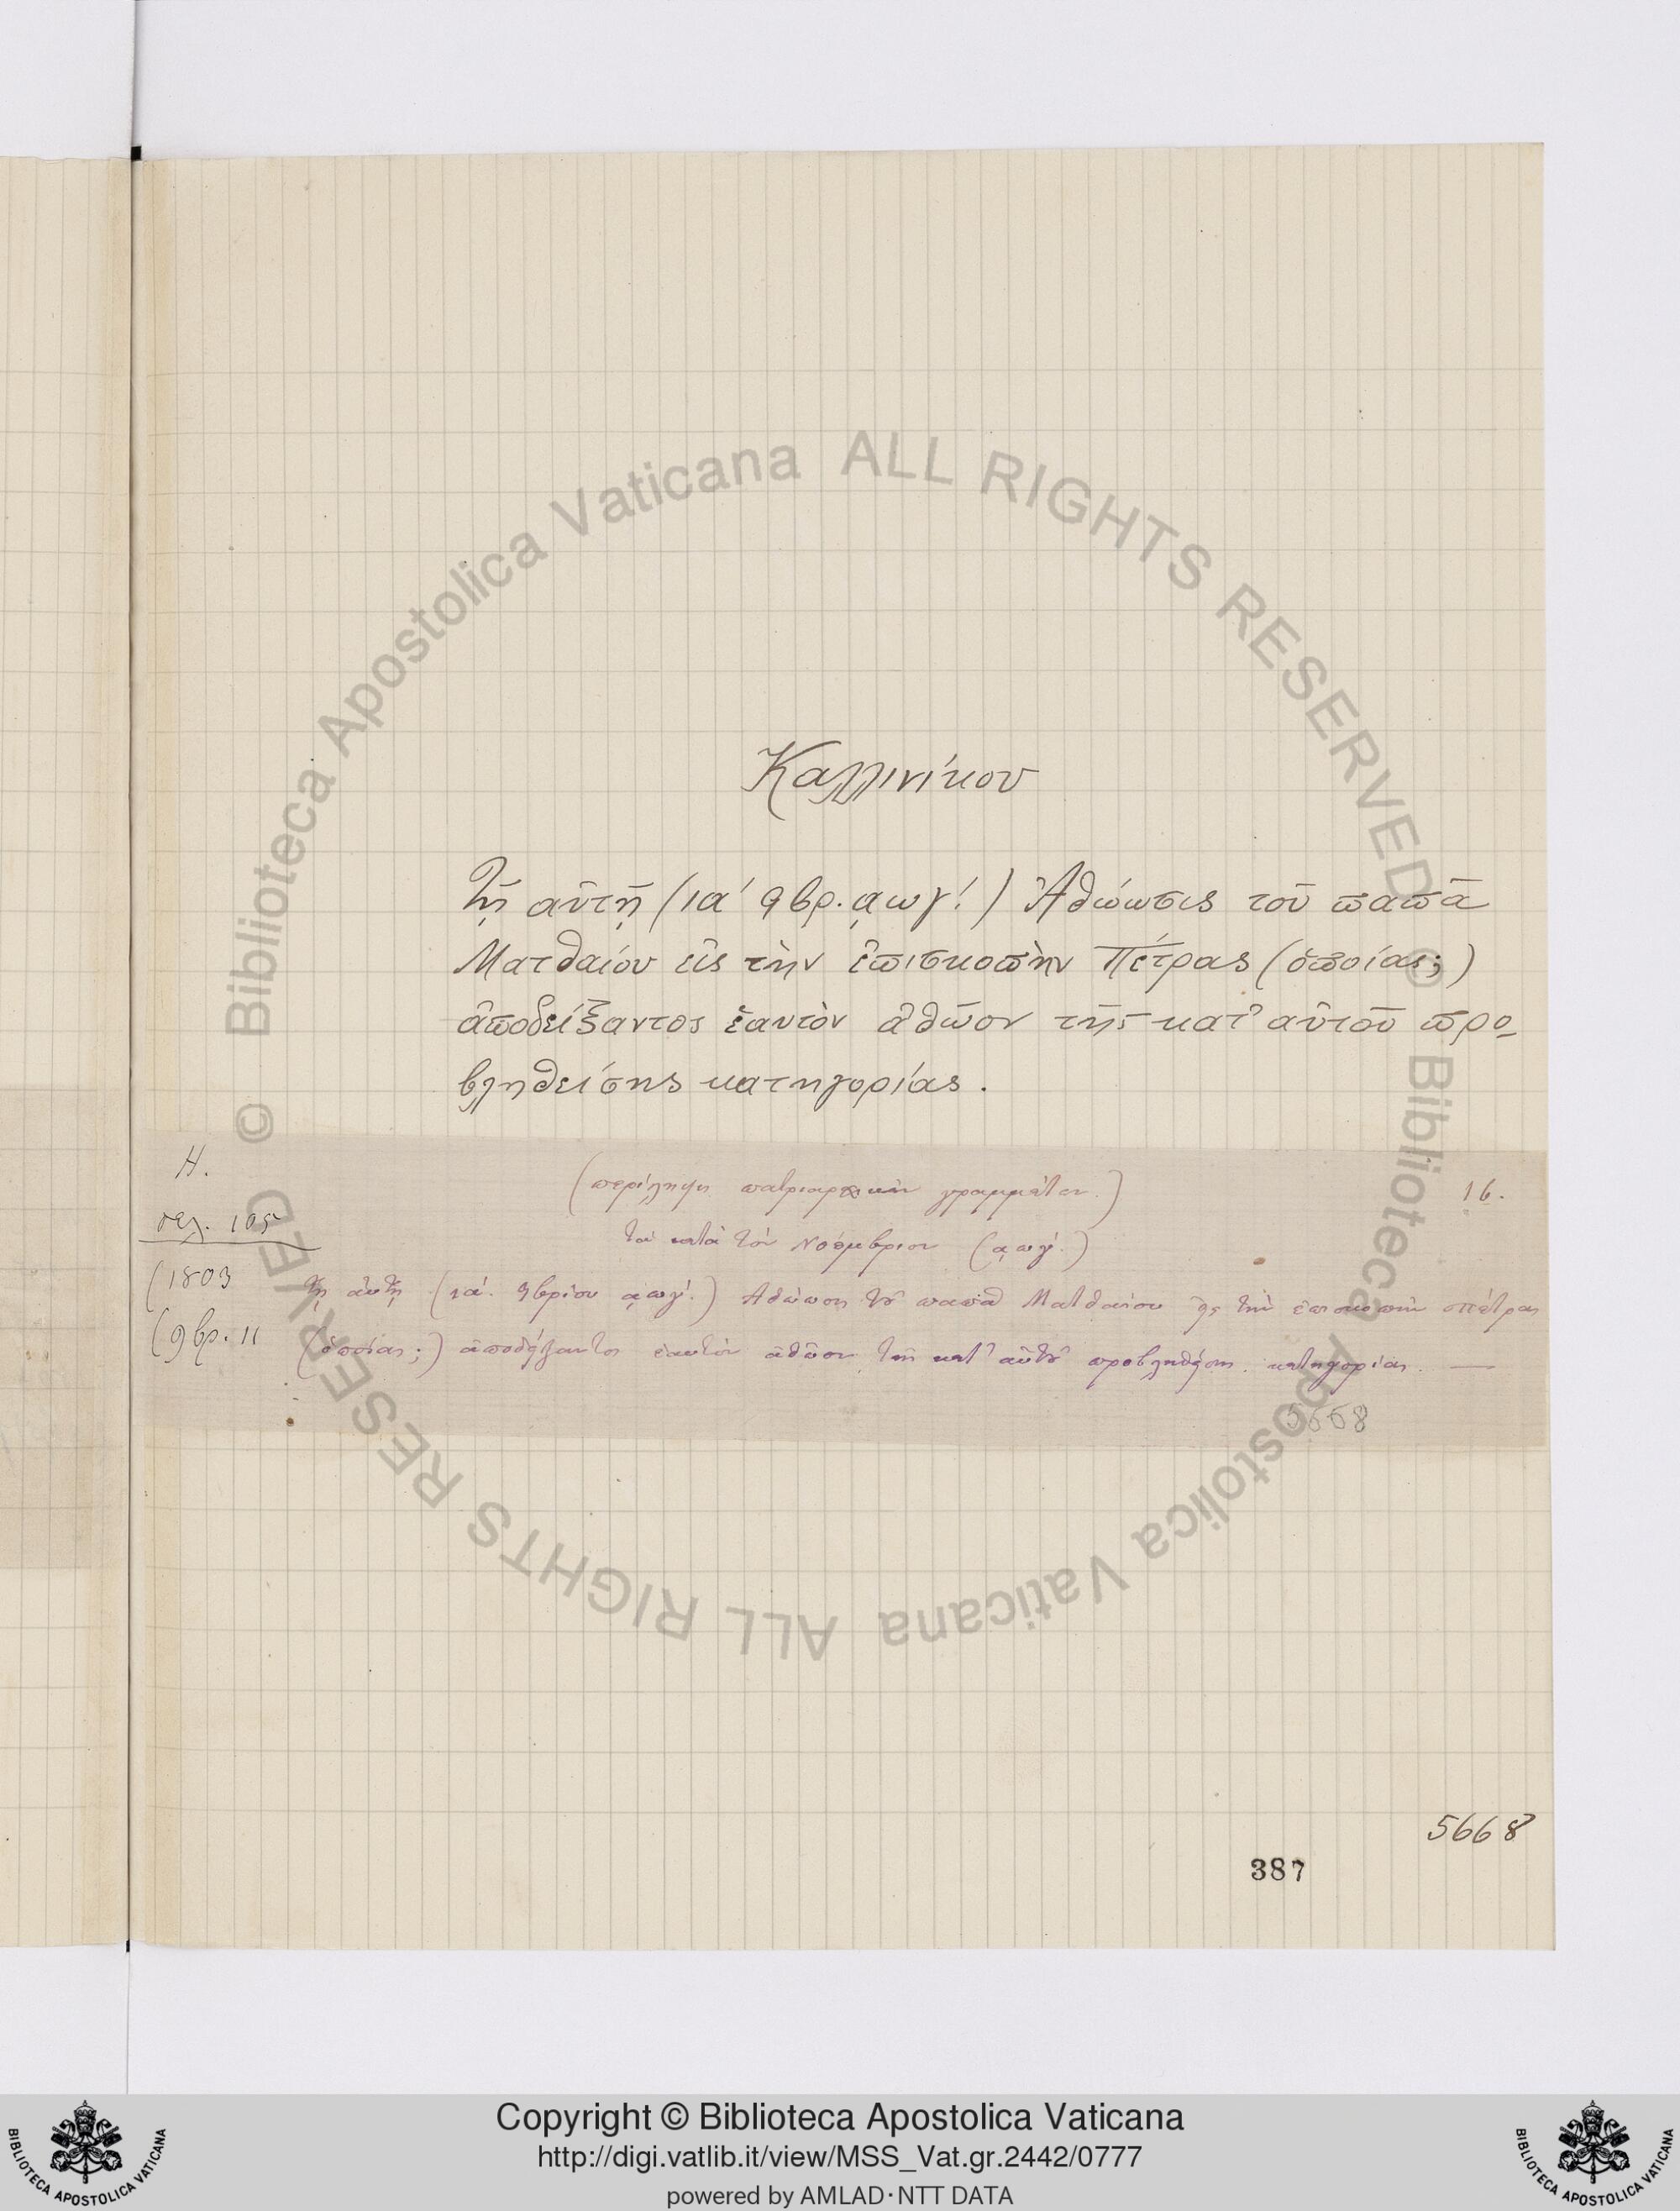 Καλλινίκου
Τῇ αὐτῇ (ια' 9βρ. ͵αωγ'.) Ἀθώωσις τοῦ παπᾶ
Ματθαίου εἰς τὴν ἐπισκοπὴν Πέτρας (ὁποίας;)
ἀποδείξαντος ἑαυτὸν ἀθῶον τῆς κατ' αὐτοῦ προ-
βληθείσης κατηγορίας.
Η.
(περίληψη πατριαρχικῶν γραμμάτων.)
16.
σελ. 105
τῶν κατὰ τὸν Νοέμβριον (͵αωγ'.)
(1803
τῇ αὐτῇ (ια'. 9βρίου ͵αωγ'.) Ἀθώωσης τοῦ παπᾶ Ματθαίου εἰς τὴν ἐπισκοπὴν πέτρας
(9βρ. 11
(ὁποίας;) ἀποδείξαντος ἑαυτὸν ἀθῶον τῆς κατ' αὐτοῦ προβληθείσης κατηγορίας. —
5668
5668
387
© Biblioteca Apostolica Vaticana ALL RIGHTS RESERVED
© Biblioteca Apostolica Vaticana ALL RIGHTS RESERVED
Copyright © Biblioteca Apostolica Vaticana
http://digi.vatlib.it/view/MSS_Vat.gr.2442/0777
powered by AMLAD·NTT DATA
BIBLIOTECA APOSTOLICA VATICANA
BIBLIOTECA APOSTOLICA VATICANA